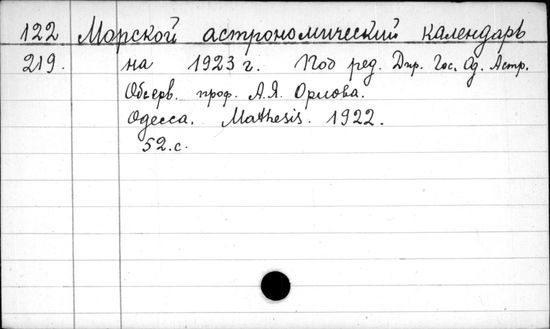 122 Морской астрономический календарь
219. на 1923 г. Под ред. Дир. Гос. Од. Астр.
Обсерв. проф. А.Я. Орлова.
Одесса. Mathesis. 1922.
52.с.